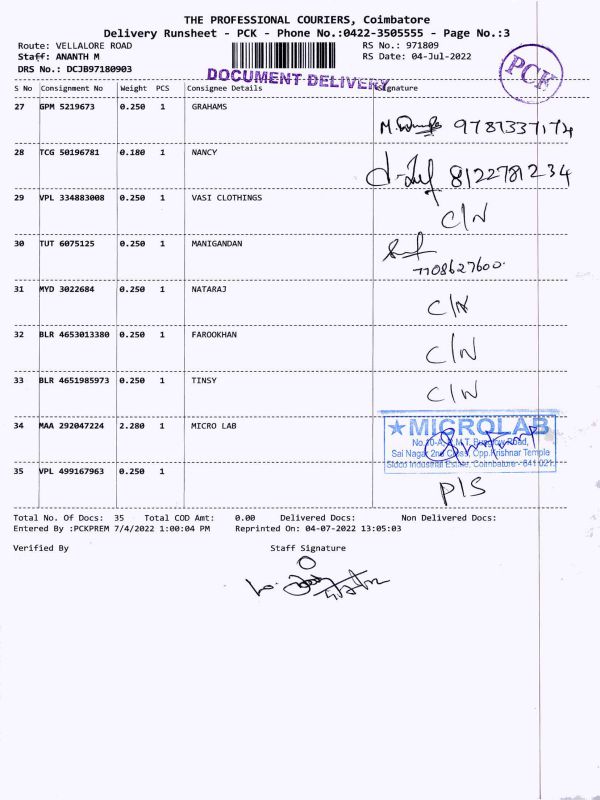 THE PROFESSIONAL COURIERS, Coimbatore
Delivery Runsheet - PCK - Phone No.:0422-3505555 - Page No.:3
Route: VELLALORE ROAD RS No.: 971809
Staff: ANANTH M RS Date: 04-Jul-2022
DRS No.: DCJB97180903
DOCUMENT DELIVERY
PCK
S No Consignment No Weight PCS Consignee Details Signature
27 GPM 5219673 0.250 1 GRAHAMS
28 TCG 50196781 0.180 1 NANCY 8122781234
29 VPL 334883008 0.250 1 VASI CLOTHINGS C/N
30 TUT 6075125 0.250 1 MANIGANDAN
7708627600
31 MYD 3022684 0.250 1 NATARAJ C/N
32 BLR 4653013380 0.250 1 FAROOKHAN C/N
33 BLR 4651985973 0.250 1 TINSY C/N
34 MAA 292047224 2.280 1 MICRO LAB
★MICROLAB
Sai Nagar 2nd Cross, Opp.Krishnar Temple
Sidco Industrial Estate, Coimbatore - 641 021.
35 VPL 499167963 0.250 1 P/S
Total No. Of Docs: 35 Total COD Amt: 0.00 Delivered Docs: Non Delivered Docs:
Entered By :PCKPREM 7/4/2022 1:00:04 PM Reprinted On: 04-07-2022 13:05:03
Verified By Staff Signature